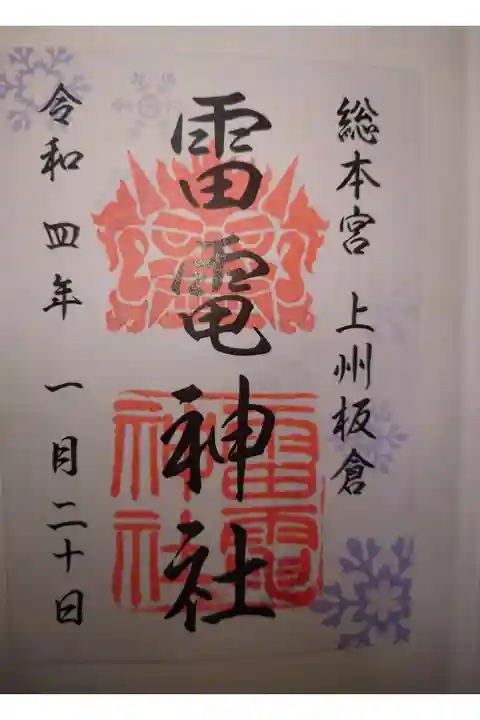 総本宮 上州板倉
雷電神社
雷電神社
令和四年 一月二十日